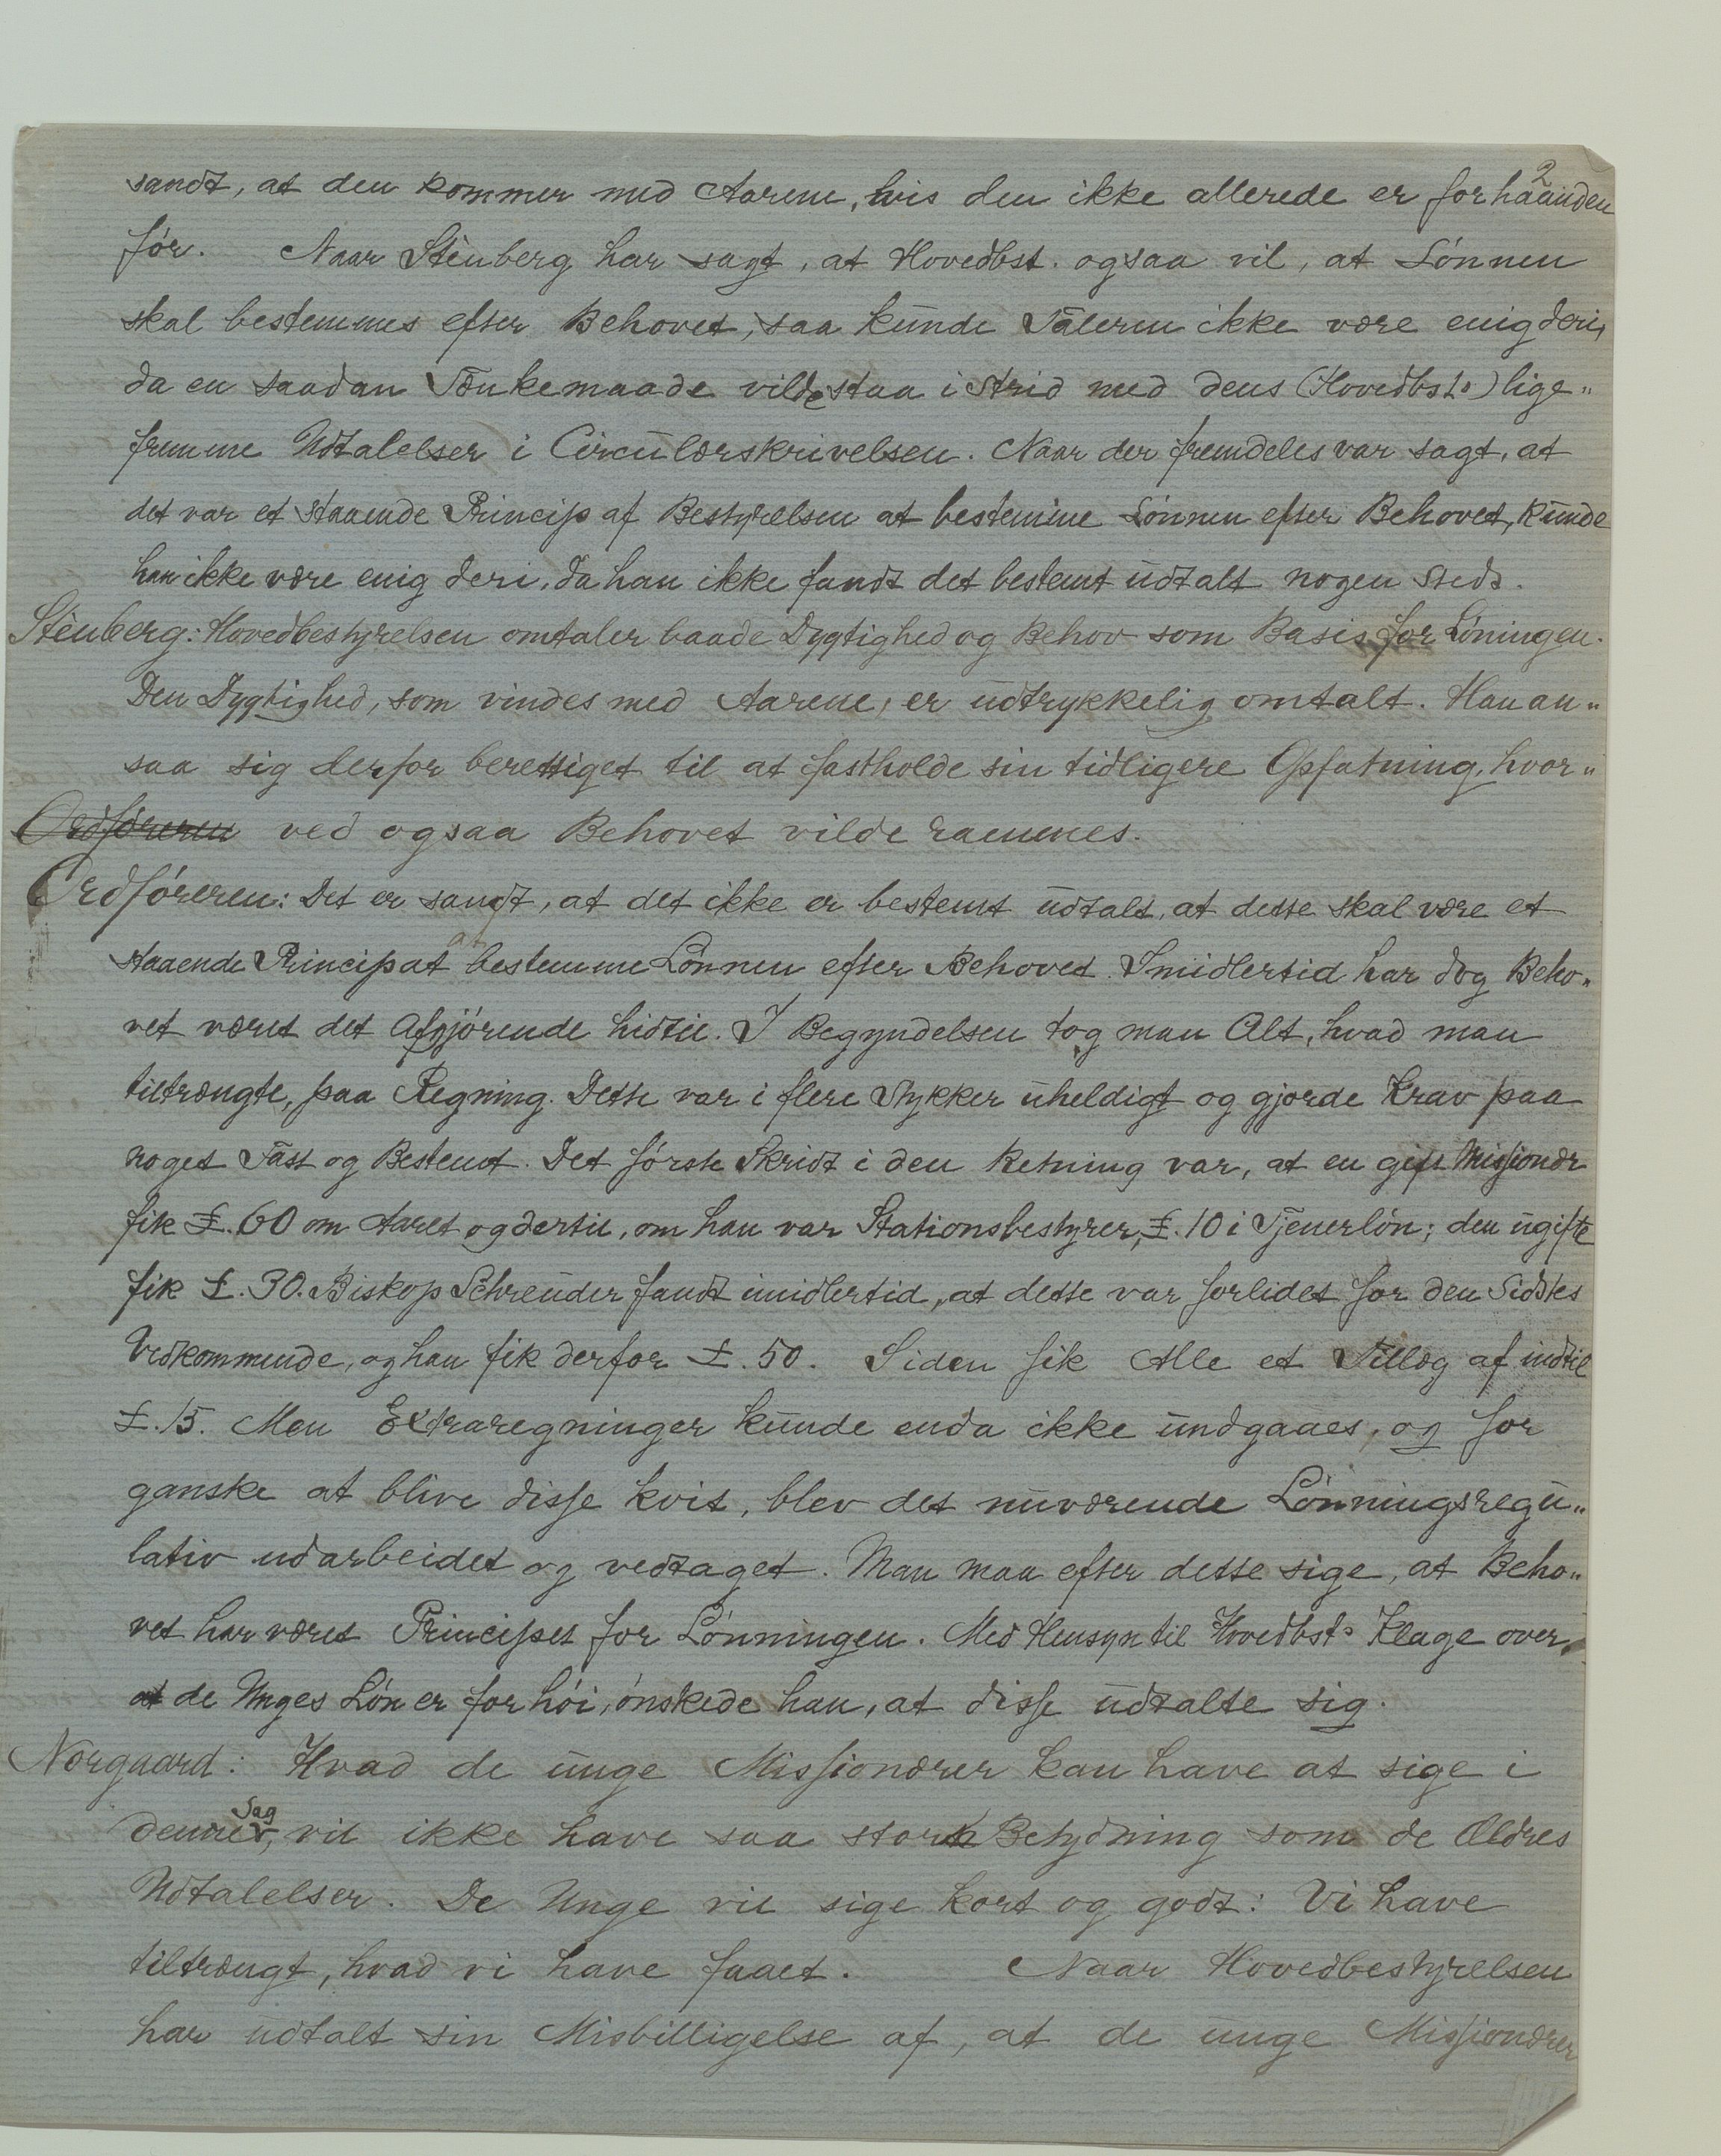 2
sandt, at den kommer med Aarene, hvis den ikke allerede er forhaanden
før. Naar Stenberg har sagt, at Hovedbst. ogsaa vil, at Lønnen
skal bestemmes efter Behovet, saa kunde Taleren ikke være enig deri,
da en saadan Tænkemaade vilde staa i Strid med dens (Hovedbsts) lige„
fremme Udtalelser i Circulærskrivelsen. Naar der fremdeles var sagt, at
det var et staaende Princip af Bestyrelsen at bestemme Lønnen efter Behovet, kunde
han ikke være enig deri, da han ikke fandt det bestemt udtalt nogen Steds.
Stenberg: Hovedbestyrelsen omtaler baade Dygtighed og Behov som Basis for Løningen.
Den Dygtighed, som vindes med Aarene, er udtrykkelig omtalt. Han an„
saa sig derfor berettiget til at fastholde sin tidligere Opfatning, hvor„
Ordføreren ved ogsaa Behovet vilde rammes.
Ordføreren: Det er sandt, at det ikke er bestemt udtalt, at dette skal være et
staaende Princip at bestemme Lønnen efter Behovet. Imidlertid har dog Beho„
vet været det Afgjørende hidtil. I Begyndelsen tog man Alt, hvad man
tiltrængte, paa Regning. Dette var i flere Stykker uheldigt og gjorde Krav paa
noget Fast og Bestemt. Det første Skridt i den Retning var, at en gift Missionær
fik £. 60 om Aaret og dertil, om han var Stationsbestyrer, £. 10 i Tjenerløn; den ugifte
fik £. 30. Biskop Schreuder fandt imidlertid, at dette var forlidet for den Sidstes
Vedkommende, og han fik derfor £. 50. Siden fik Alle et Tillæg af indtil
£. 15. Men Extraregninger kunde enda ikke undgaaes, og for
ganske at blive disse kvit, blev det nuværende Lønningsregu„
lativ udarbeidet og vedtaget. Man maa efter dette sige, at Beho„
vet har været Principet for Lønningen. Med Hensyn til Hovedbsts Klage over,
at de Unges Løn er for høi, ønskede han, at disse udtalte sig.
Nørgaard: Hvad de unge Missionærer kan have at sige i
denne Sag, vil ikke have saa stor Betydning som de Ældres
Udtalelser. De Unge vil sige kort og godt: Vi have
tiltrængt, hvad vi have faaet. Naar Hovedbestyrelsen
har udtalt sin Misbilligelse af, at de unge Missionærer